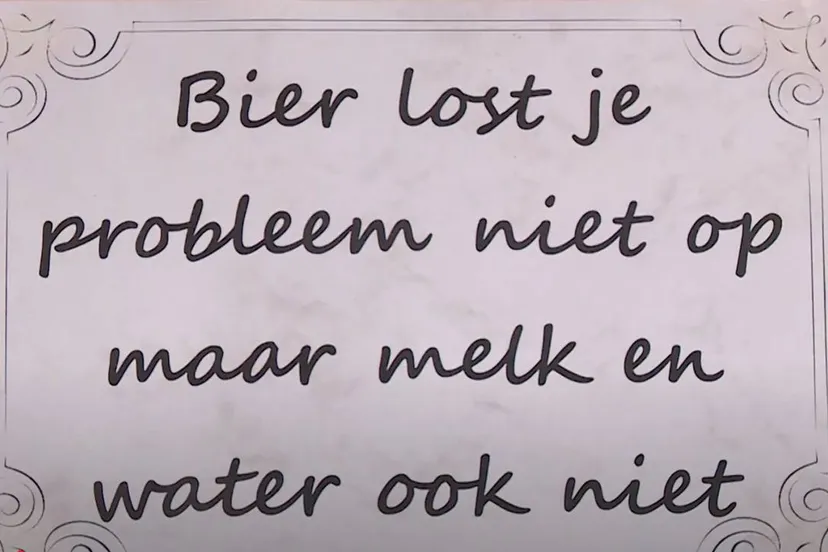 Bier lost je
probleem niet op
maar melk en
water ook niet